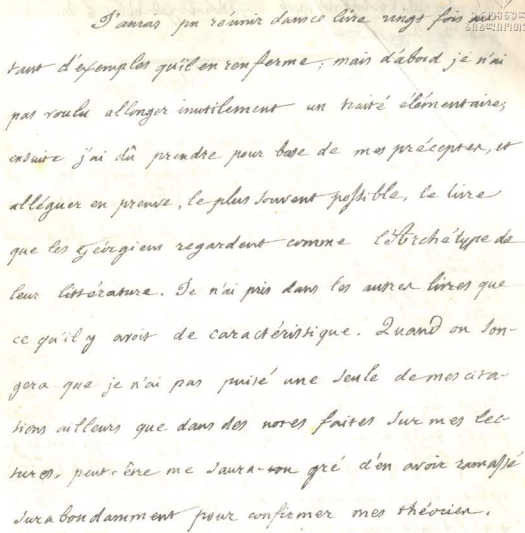 J'aurais pu réunir dans ce livre vingt fois au-
tant d'exemples qu'il en renferme; mais d'abord je n'ai
pas voulu allonger inutilement un traité élémentaire;
ensuite j'ai dû prendre pour base de mes préceptes, et
alléguer en preuve, le plus souvent possible, le livre
que les Géorgiens regardent comme l'Archétype de
leur littérature. Je n'ai pris dans les autres livres que
ce qu'il y avoit de caractéristique. Quand on son-
gera que je n'ai pas puisé une seule de mes cita-
tions ailleurs que dans des notes faites sur mes lec-
tures, peut-être me saura-t-on gré d'en avoir ramassé
surabondamment pour confirmer mes théories.